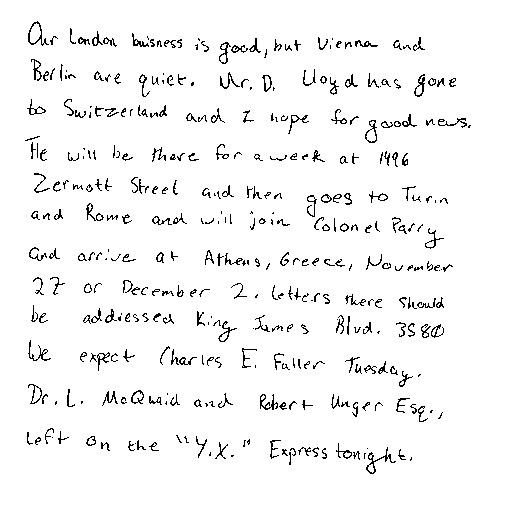 Our London buisness is good, but Vienna and
Berlin are quiet. Mr. D. Lloyd has gone
to Switzerland and I hope for good news.
He will be there for a week at 1496
Zermott Street and then goes to Turin
and Rome and will join Colonel Parry
and arrive at Athens, Greece, November
27 or December 2. Letters there should
be addressed King James Blvd. 3580
We expect Charles E. Fuller Tuesday.
Dr. L. McQuaid and Robert Unger Esq.,
left on the "Y.X." Express tonight.